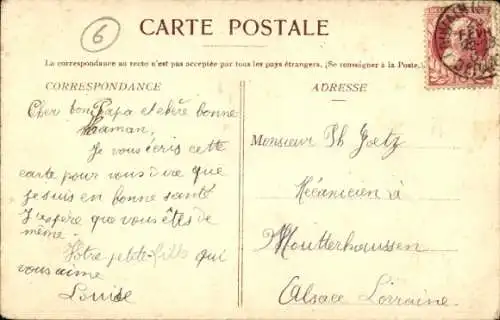 6
CARTE POSTALE
La correspondance au recto n'est pas acceptée par tous les pays étrangers. (Se renseigner à la Poste.)
CORRESPONDANCE
Cher bon Papa et chère bonne
Maman,
Je vous écris cette
carte pour vous dire que
je suis en bonne santé
J'espère que vous êtes de
même.
Votre petite-fille qui
vous aime
Louise
ADRESSE
Monsieur Ph Goetz
Mécanicien à
Moutterhaussen
Alsace Lorraine.